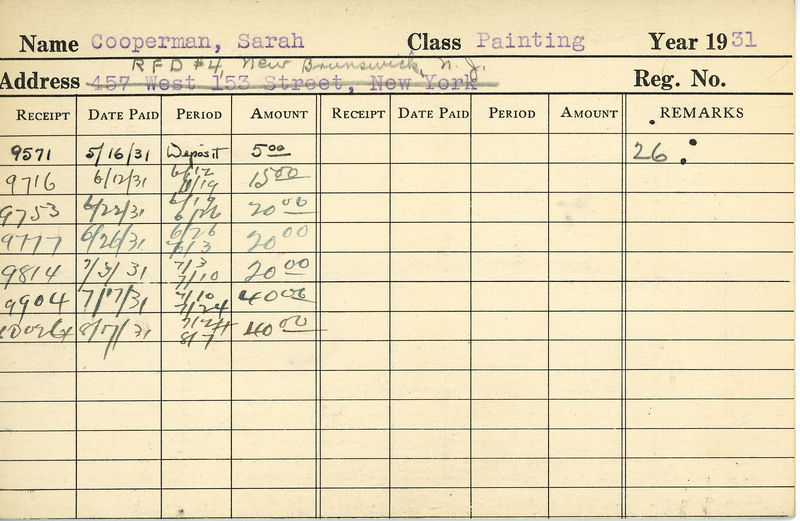 Name Cooperman, Sarah Class Painting Year 1931
RFD #4, New Brunswick, N. J.
Address 457 West 153 Street, New York Reg. No.
RECEIPT DATE PAID PERIOD AMOUNT RECEIPT DATE PAID PERIOD AMOUNT REMARKS
9571 5/16/31 Deposit 5 00 26
9716 6/12/31 6/12 6/19 15 00
9753 6/22/31 6/19 6/26 20 00
9777 6/26/31 6/26 7/3 20 00
9814 7/3/31 7/3 7/10 20 00
9904 7/17/31 7/10 7/24 40 00
8/7/31 7/24 8/7 40 00